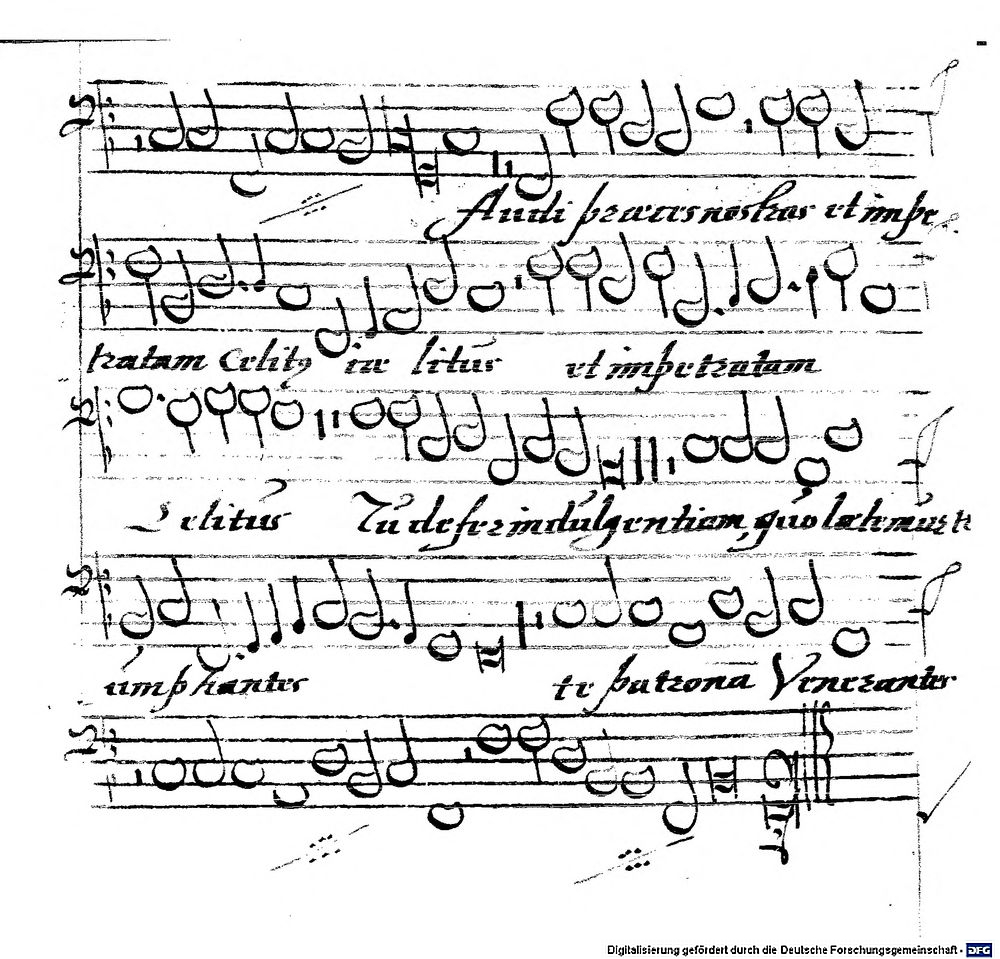 Audi præces nostras et impe
tratam Celitus cæ litus et impetratam
Celitus Tu defer indulgentiam, quo lætemur tr
iumphantes te patronā Venerantes
Digitalisierung gefördert durch die Deutsche Forschungsgemeinschaft - DFG